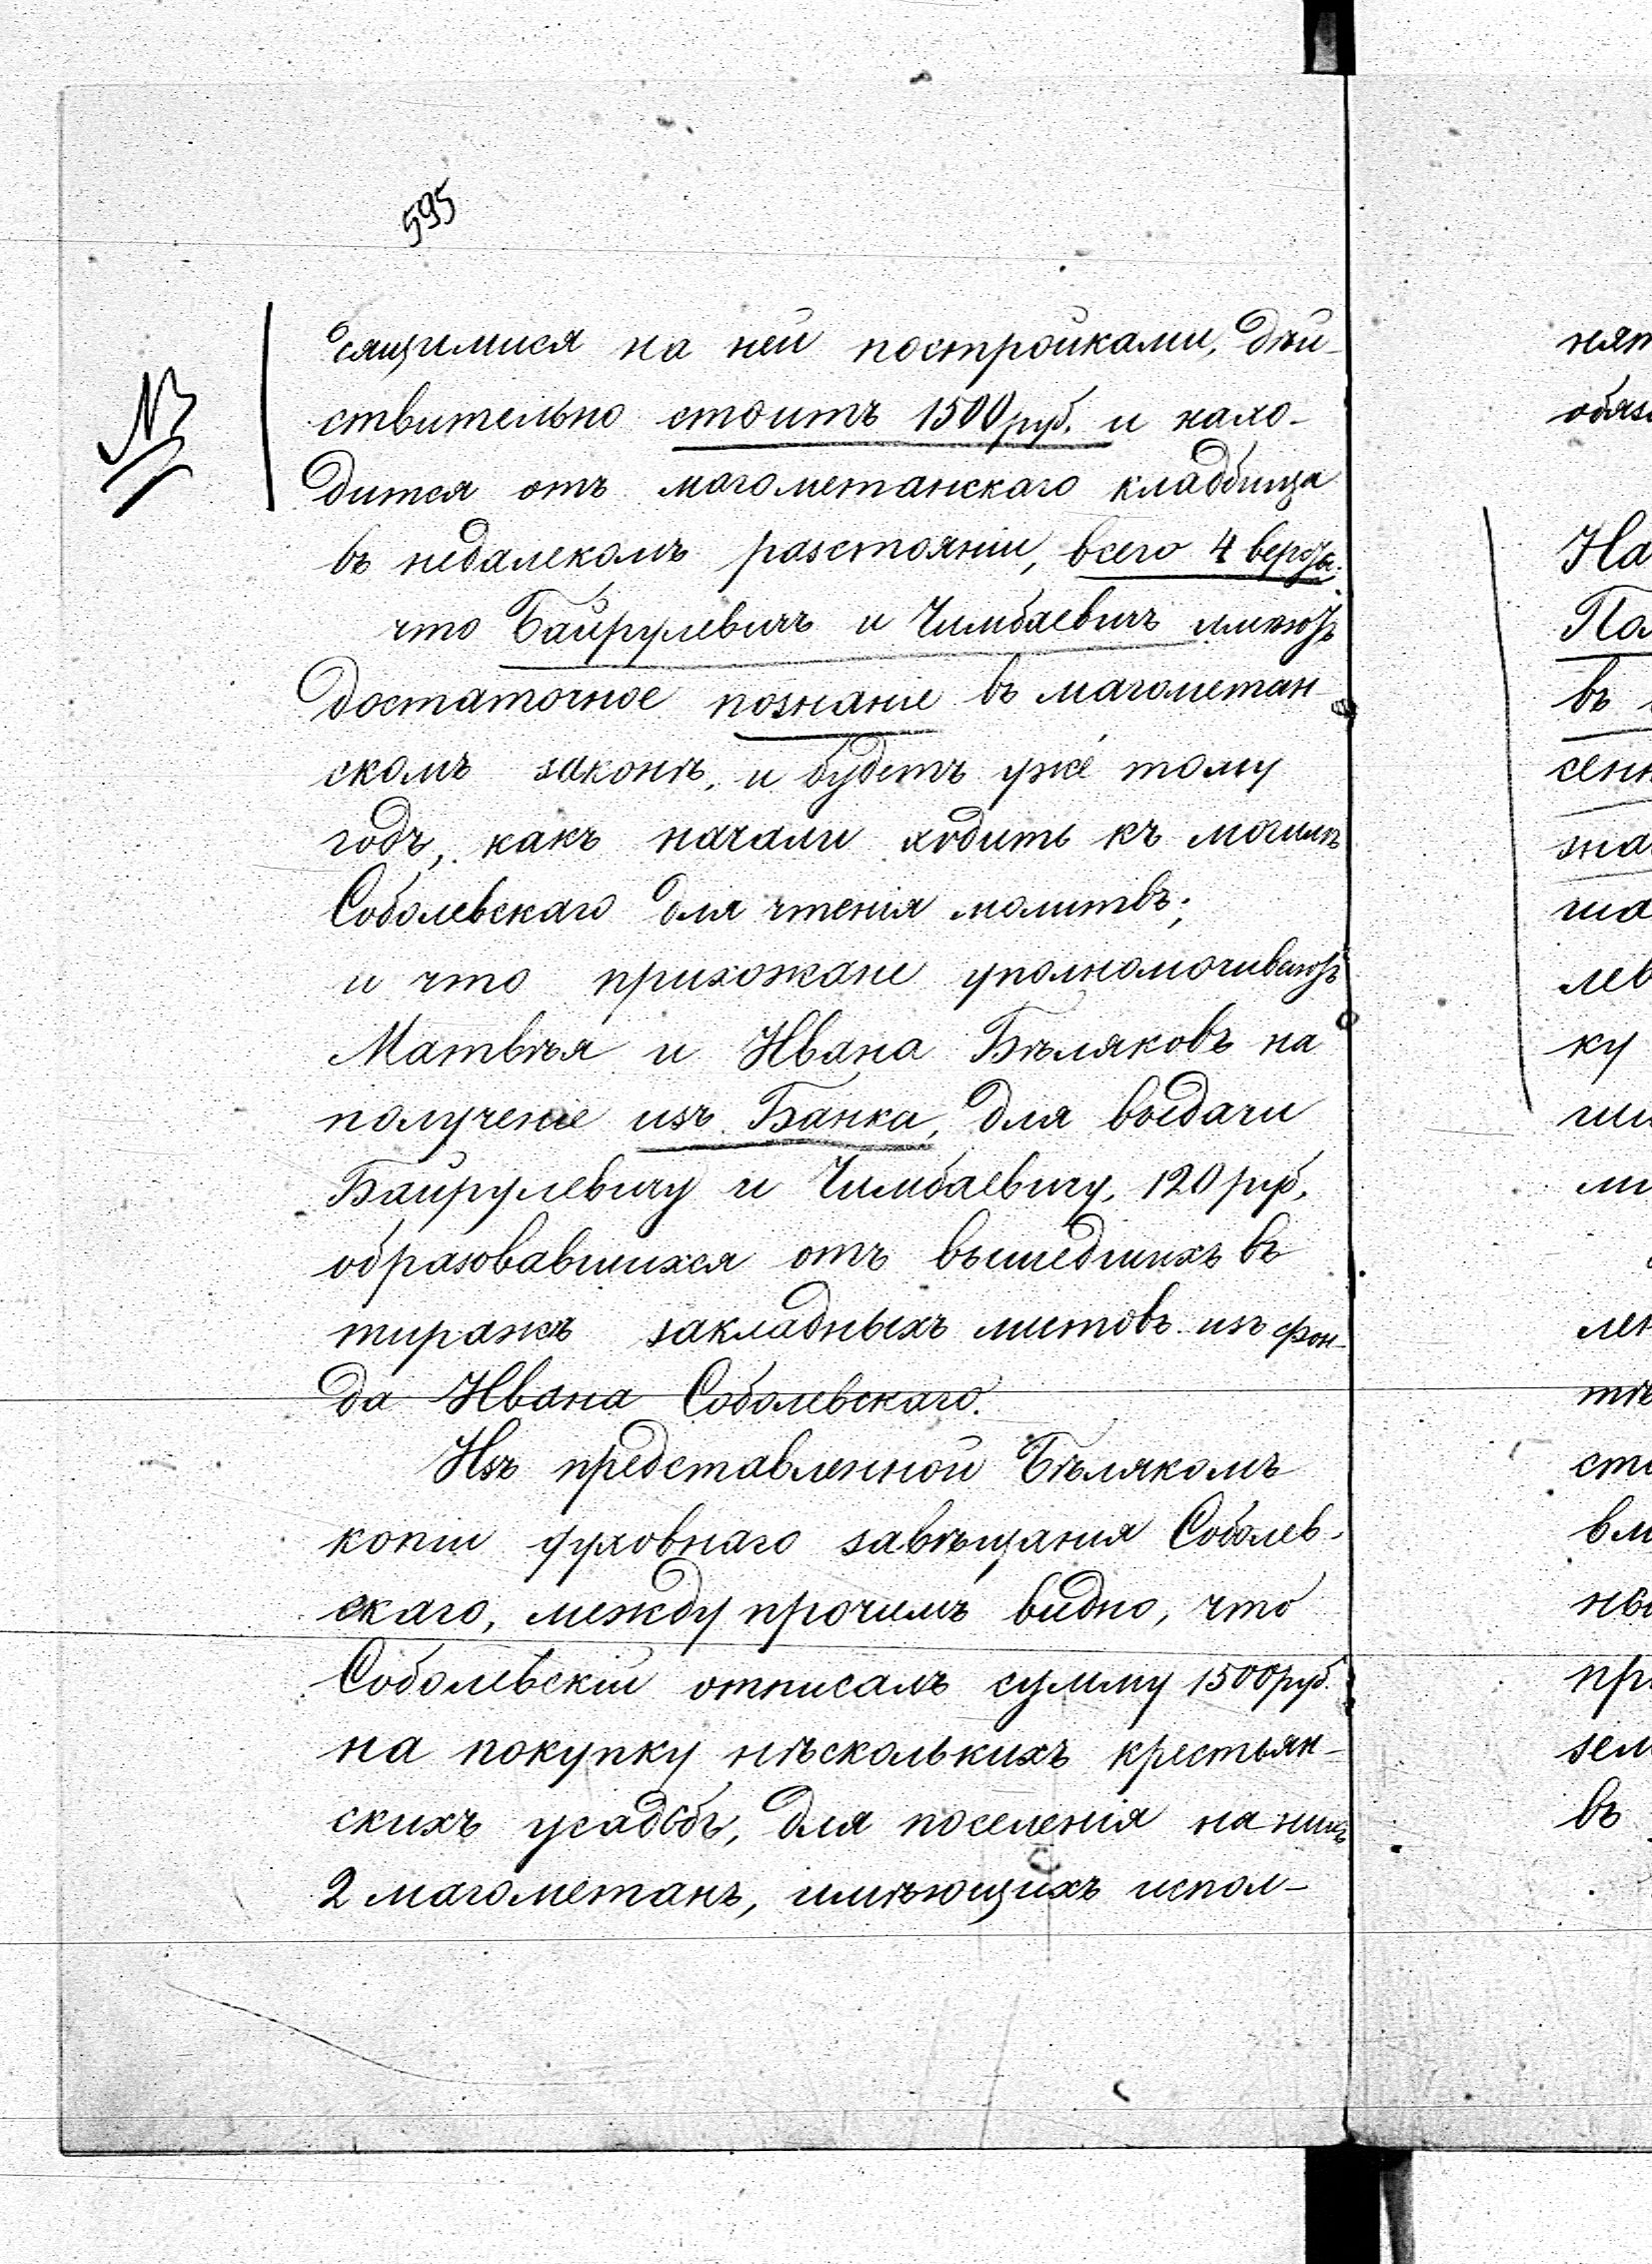 595
сящимися на ней постройками, дѣй-
ствительно стоитъ 1500 руб. и нахо-
дится отъ магометанскаго кладбища
въ недалекомъ разстояніи, всего 4 версты.
что Байрулевичъ и Чимбаевичъ имѣютъ
достаточное познаніе въ магометан
скомъ законѣ, и будетъ уже тому
годъ, какъ начали ходить къ могилѣ
Соболевскаго для чтенія молитвъ;
и что прихожане уполномочиваютъ
Матвѣя и Ивана Бѣляковъ на
полученіе изъ Банка, для выдачи
Байрулевичу и Чимбаевичу, 120 руб,
образовавшихся отъ вышедшихъ въ
тиражъ закладныхъ листовъ изъ фон-
да Ивана Соболевскаго.
Изъ представленной Бѣлякомъ
копіи духовнаго завѣщанія Соболев-
скаго, между прочимъ видно, что
Соболевскій отписалъ сумму 1500 руб.
на покупку нѣсколькихъ крестьян-
скихъ усадьбъ, для поселенія на нихъ
2 магометанъ, имѣющихъ испол-
нят
обяз
На
Пол
въ
сенн
зна
ша
лев
ку
ши
ми
лен
тѣ
ст
вм
ны
пр
зем
въ